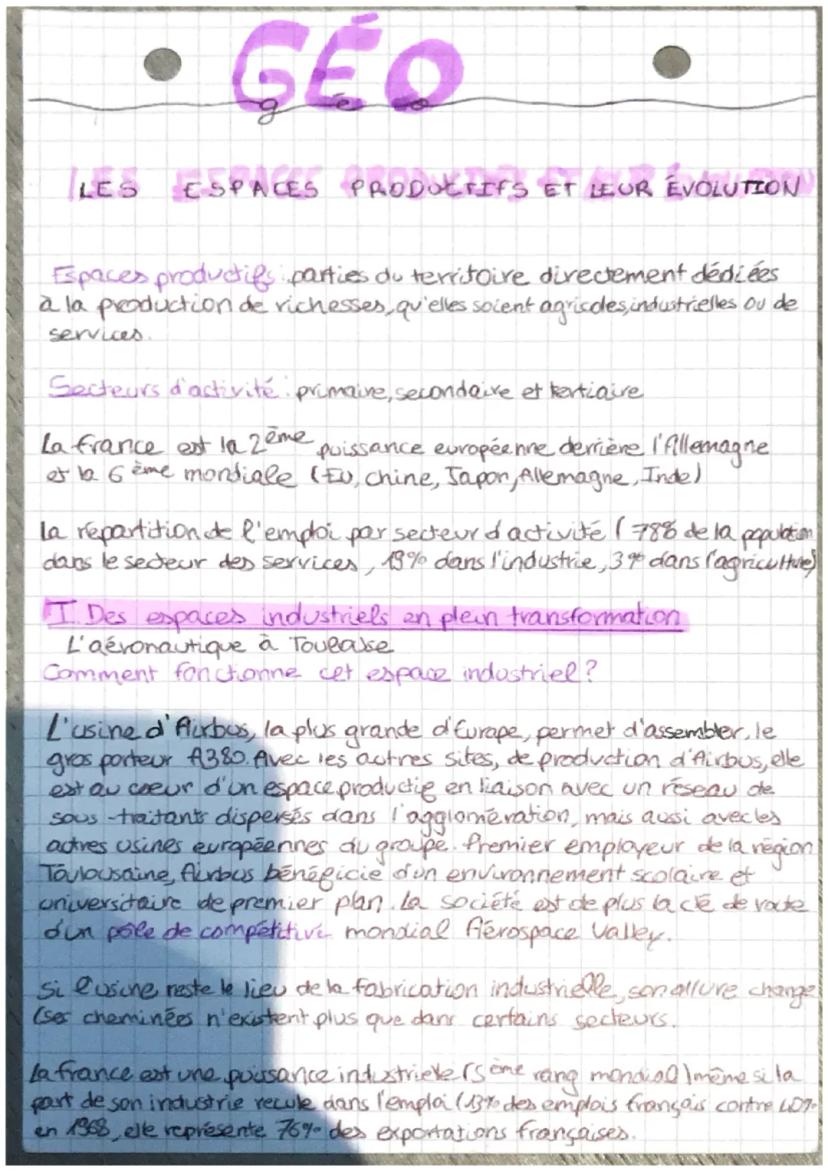 GÉO
géo
LES ESPACES PRODUCTIFS ET LEUR ÉVOLUTION
Espaces productifs : parties du territoire directement dédiées
à la production de richesses, qu'elles soient agricoles, industrielles ou de
services.
Secteurs d'activité : primaire, secondaire et tertiaire
La france est la 2ème puissance européenne derrière l'Allemagne
et la 6ème mondiale (EU, chine, Japon, Allemagne, Inde)
la répartition de l'emploi par secteur d'activité (78% de la population
dans le secteur des services, 19% dans l'industrie, 3% dans l'agriculture)
I Des espaces industriels en plein transformation
L'aéronautique à Toulouse
Comment fonctionne cet espace industriel ?
L'usine d'Airbus, la plus grande d'Europe, permet d'assembler, le
gros porteur A380. Avec les autres sites, de production d'Airbus, elle
est au coeur d'un espace productif en liaison avec un réseau de
sous-traitants dispersés dans l'agglomération, mais aussi avec les
autres usines européennes du groupe. Premier employeur de la région
Toulousaine, Airbus bénéficie d'un environnement scolaire et
universitaire de premier plan. La société est de plus la clé de voute
d'un pôle de compétitivi mondial Aérospace Valley.
Si l'usine, reste le lieu de la fabrication industrielle, son allure change
(ses cheminées n'existent plus que dans certains secteurs.
La france est une puissance industrielle (5ème rang mondial) même si la
part de son industrie recule dans l'emploi (13% des emplois français contre 40%
en 1968, elle représente 76% des exportations françaises.